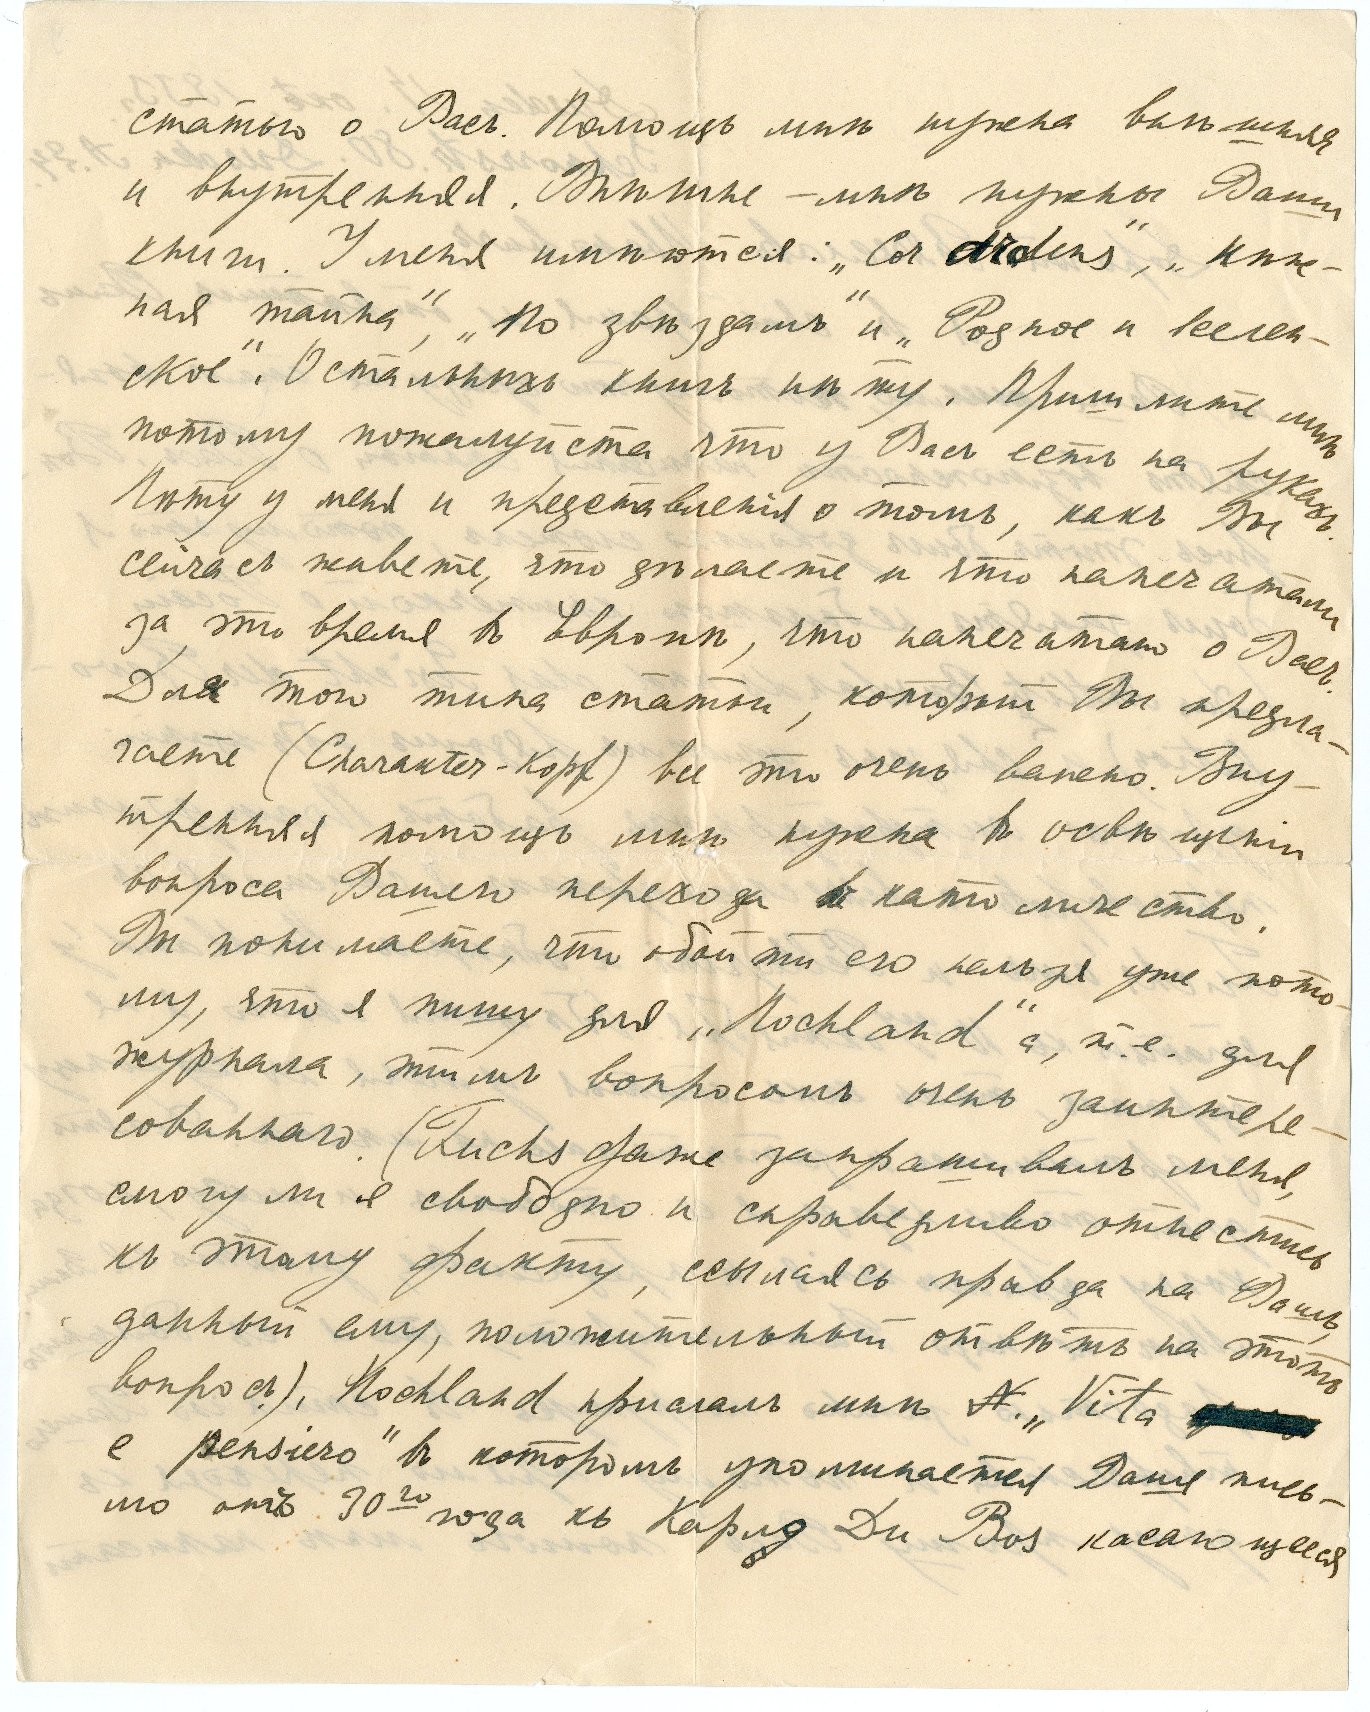 статью о Васъ. Помощь мнѣ нужна внѣшняя
и внутренняя. Внѣшне – мнѣ нужны Ваши
книги. У меня имѣются: „Cor ardens", „Нѣж-
ная тайна", „По звѣздамъ" и „Родное и вселен-
ское". Остальныхъ книгъ нѣту. Пришлите мнѣ
потому пожалуйста что у Васъ есть на рукахъ.
Нѣту у меня и представленія о томъ, какъ Вы
сейчасъ живете, что дѣлаете и что напечатали
за это время въ Европѣ, что напечатано о Васъ.
Для того типа статьи, который Вы предла-
гаете (Charakter-Kopf) все это очень важно. Вну-
тренняя помощь мнѣ нужна въ освѣщеніи
вопроса Вашего перехода въ католичество.
Вы понимаете, что обойти его нельзя уже пото-
му, что я пишу для „Hochland"а, т.е. для
журнала, этимъ вопросомъ очень заинтере-
сованнаго. (Fuchs даже запрашивалъ меня,
смогу ли я свободно и справедливо отнестись
къ этому факту, ссылаясь правда на Вашъ,
данный ему, положительный отвѣтъ на этотъ
вопросъ). Hochland прислалъ мнѣ №. „Vita
e pensiero" въ которомъ упоминается Ваше пись-
мо отъ 30го года къ Карлу Du Bos касающееся